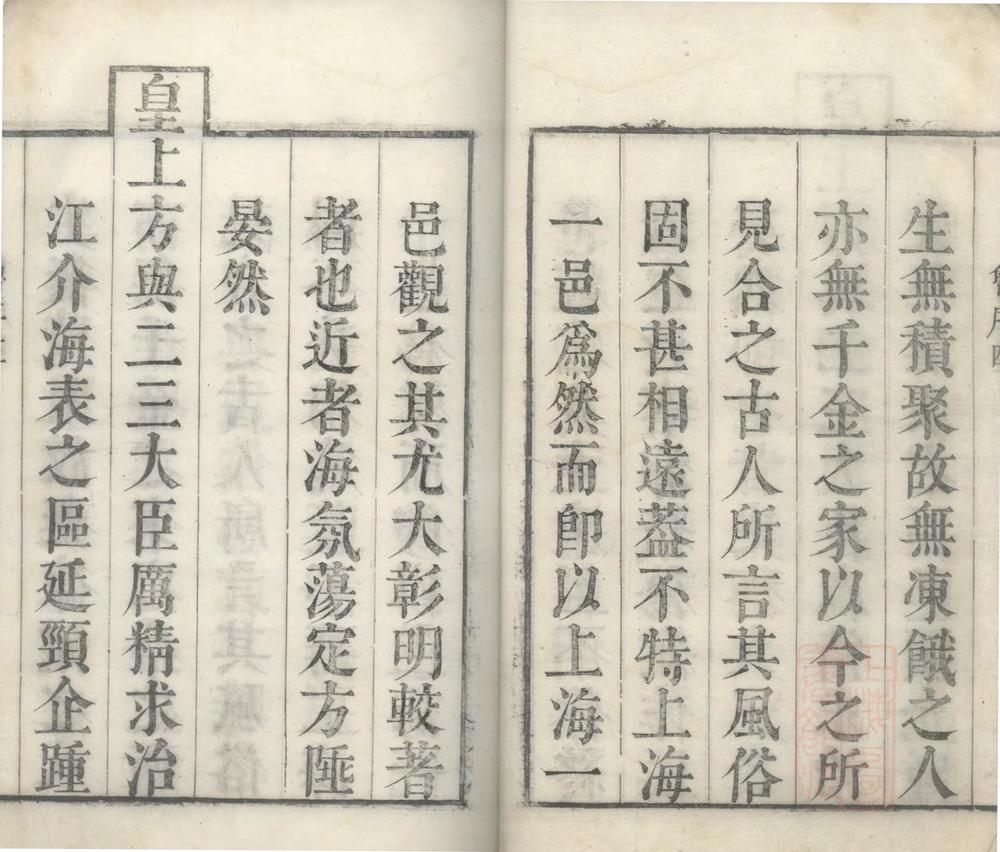 生無積聚故無凍餓之人
亦無千金之家以今之所
見合之古人所言其風俗
固不甚相遠葢不特上海
一邑爲然而卽以上海一
邑觀之其尤大彰明較著
者也近者海氛蕩定方陲
晏然
皇上方與二三大臣厲精求治
江介海表之區延頸企踵